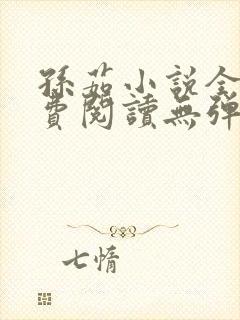 孫茹小說全
費閱讀無彈
七情